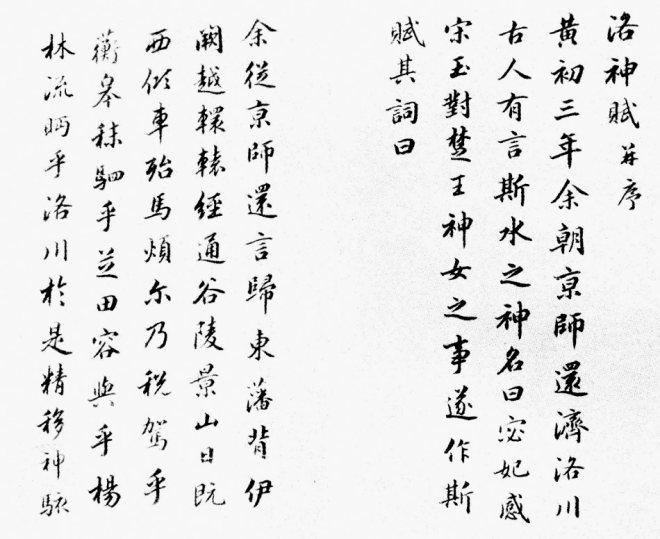 洛神賦並序
黃初三年余朝京師還濟洛川
古人有言斯水之神名曰宓妃感
宋玉對楚王神女之事遂作斯
賦其詞曰
余從京師還言歸東藩背伊
闕越轘轅經通谷陵景山日既
西傾車殆馬煩尔乃稅駕乎
蘅皋秣駟乎芝田容與乎楊
林流眄乎洛川於是精移神駭